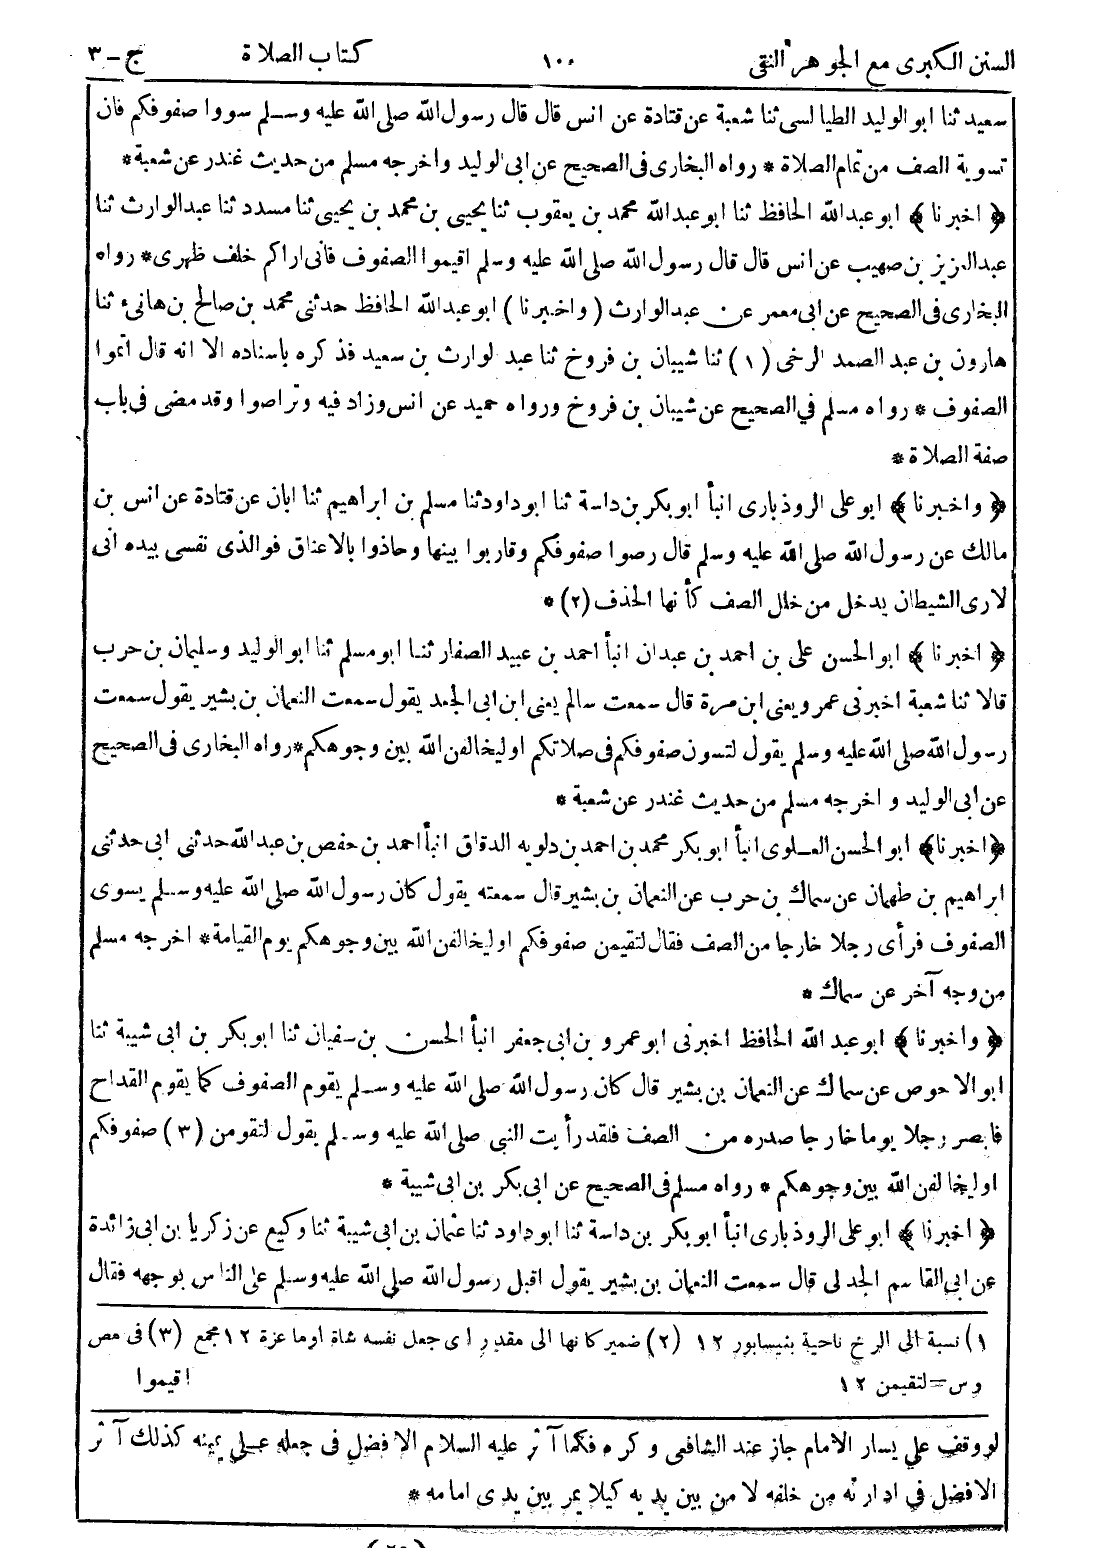 السنن الكبرى مع الجوهر النقى ١٠٠ كتاب الصلاة ج - ٣
سعيد ثنا ابو الوليد الطيالسى ثنا شعبة عن قتادة عن انس قال قال رسول الله صلى الله عليه وسلم سووا صفوفكم فان
تسوية الصف من تمام الصلاة * رواه البخارى فى الصحيح عن ابى الوليد واخرجه مسلم من حديث غندر عن شعبة *
﴿ اخبرنا ﴾ ابو عبد الله الحافظ ثنا ابو عبد الله محمد بن يعقوب ثنا يحيى بن محمد بن يحيى ثنا مسدد ثنا عبد الوارث ثنا
عبد العزيز بن صهيب عن انس قال قال رسول الله صلى الله عليه وسلم اقيموا الصفوف فانى اراكم خلف ظهرى * رواه
البخارى فى الصحيح عن ابى معمر عن عبد الوارث ( واخبرنا ) ابو عبد الله الحافظ حدثنى محمد بن صالح بن هانىء ثنا
هارون بن عبد الصمد الرخى (١) ثنا شيبان بن فروخ ثنا عبد لوارث بن سعيد فذكره باسناده الا انه قال اتموا
الصفوف * رواه مسلم في الصحيح عن شيبان بن فروخ ورواه حميد عن انس وزاد فيه وتراصوا وقد مضى فى باب
صفة الصلاة *
﴿ واخبرنا ﴾ ابو على الروذبارى انبأ ابو بكر بن داسة ثنا ابو داود ثنا مسلم بن ابراهيم ثنا ابان عن قتادة عن انس بن
مالك عن رسول الله صلى الله عليه وسلم قال رصوا صفوفكم وقاربوا بينها وحاذوا بالاعناق فوالذى نفسى بيده انى
لارى الشيطان يدخل من خلل الصف كأنها الحذف (٢) *
﴿ اخبرنا ﴾ ابو الحسن على بن احمد بن عبدان انبأ احمد بن عبيد الصفار ثنا ابو مسلم ثنا ابو الوليد وسليمان بن حرب
قالا ثنا شعبة اخبرنى عمر و يعنى ابن مرة قال سمعت سالم يعنى ابن ابى الجعد يقول سمعت النعمان بن بشير يقول سمعت
رسول الله صلى الله عليه وسلم يقول لتسون صفوفكم فى صلاتكم اوليخالفن الله بين وجوهكم * رواه البخارى فى الصحيح
عن ابى الوليد و اخرجه مسلم من حديث غندر عن شعبة *
﴿ اخبرنا ﴾ ابو الحسن العلوى انبأ ابو بكر محمد بن احمد بن دلويه الدقاق انبأ احمد بن حفص بن عبد الله حدثنى ابى حدثنى
ابراهيم بن طهمان عن سماك بن حرب عن النعمان بن بشير قال سمعته يقول كان رسول الله صلى الله عليه وسلم يسوى
الصفوف فرأى رجلا خارجا من الصف فقال لتقيمن صفوفكم اوليخالفن الله بين وجوهكم يوم القيامة * اخرجه مسلم
من وجه آخر عن سماك *
﴿ واخبرنا ﴾ ابو عبد الله الحافظ اخبرنى ابو عمرو بن ابى جعفر انبأ الحسن بن سفيان ثنا ابو بكر بن ابى شيبة ثنا
ابو الاحوص عن سماك عن النعمان بن بشير قال كان رسول الله صلى الله عليه وسلم يقوم الصفوف كما يقوم القداح
فابصر رجلا يوما خارجا صدره من الصف فلقد رأيت النبي صلى الله عليه وسلم يقول لتقومن (٣) صفوفكم
اوليخالفن الله بين وجوهكم * رواه مسلم فى الصحيح عن ابى بكر بن ابى شيبة *
﴿ اخبرنا ﴾ ابو على الروذبارى انبأ ابو بكر بن داسة ثنا ابو داود ثنا عثمان بن ابى شيبة ثنا وكيع عن زكريا بن ابى زائدة
عن ابى القاسم الجدلى قال سمعت النعمان بن بشير يقول اقبل رسول الله صلى الله عليه وسلم على الناس بوجهه فقال
١) نسبة الى الرخ ناحية بنيسابور ١٢ (٢) ضمير كانها الى مقدر اى جعل نفسه شاة اوماعزة ١٢ مجمع (٣) فى مص
و س = لتقيمن ١٢ اقيموا
لو وقف على يسار الامام جاز عند الشافعى وكره فكما آثر عليه السلام الافضل فى جعله على يمينه كذلك آثر
الافضل في ادارته من خلفه لا من بين يديه كيلا يمر بين يدى امامه *